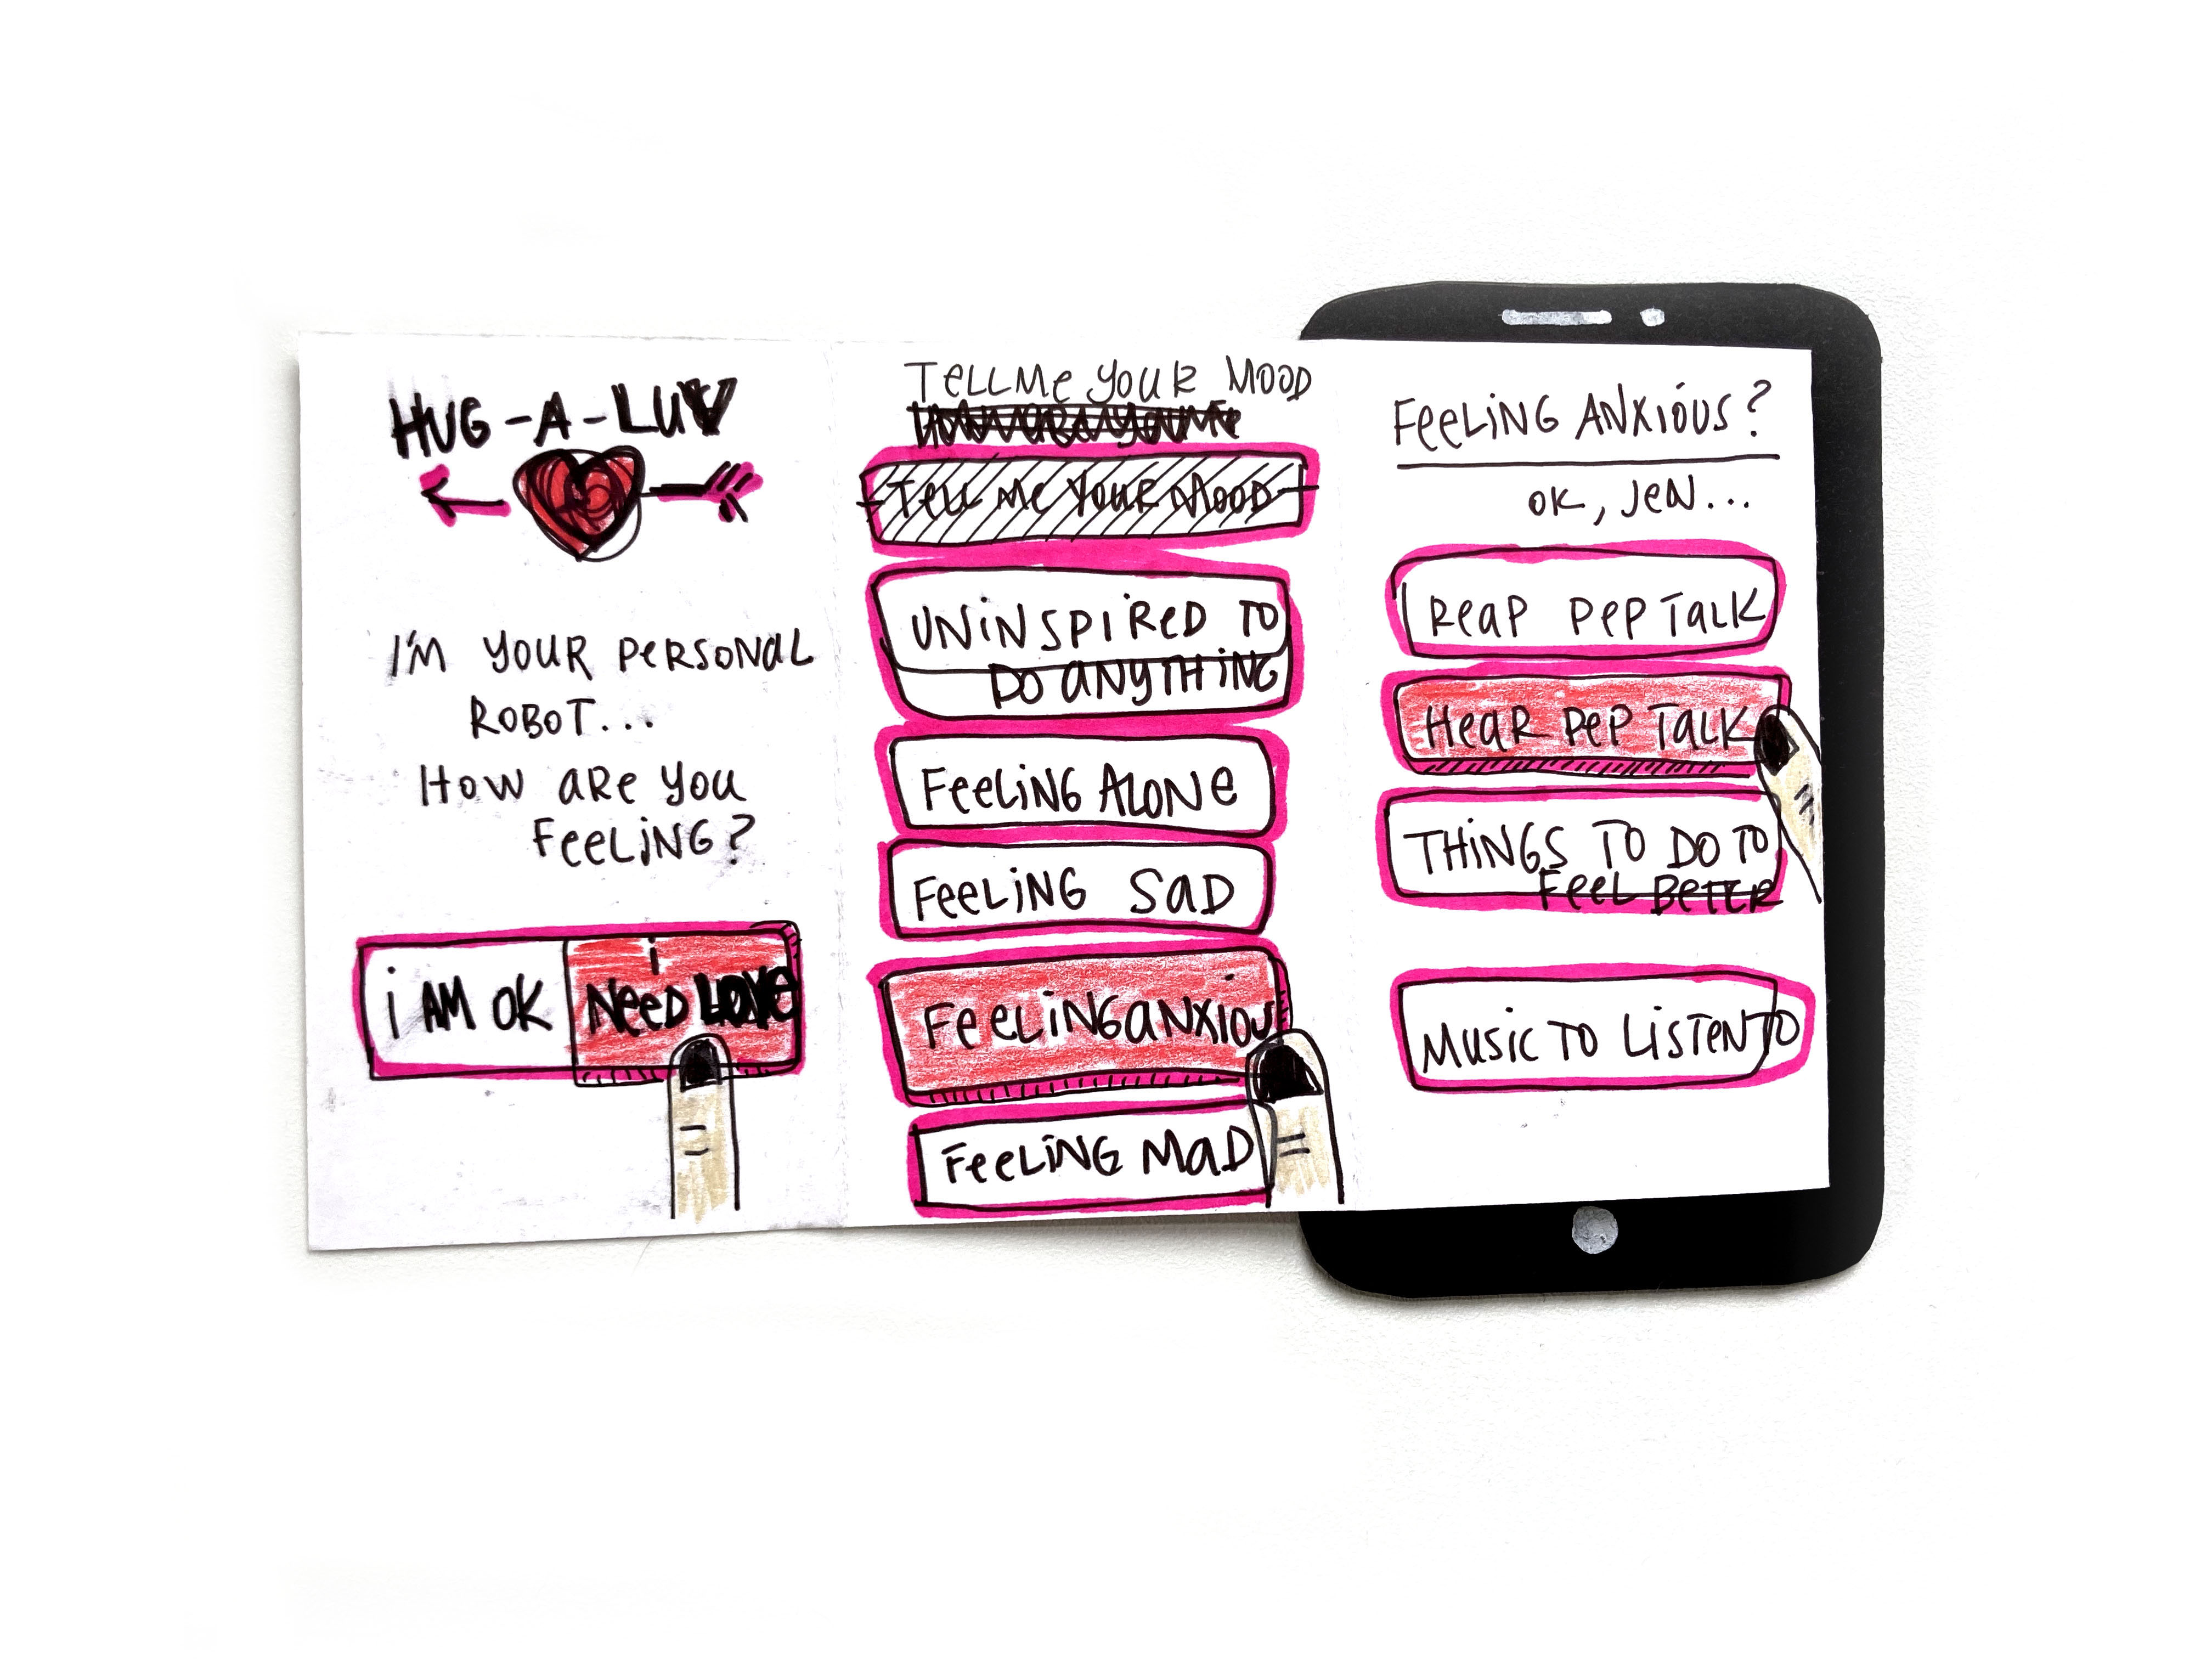 HUG-A-LUV
I'M YOUR PERSONAL
ROBOT...
HOW ARE YOU
FEELING?
i AM OK
i
NEED LOVE
TELL ME YOUR MOOD
TELL ME YOUR MOOD
UNINSPIRED TO
DO ANYTHING
FEELING ALONE
FEELING SAD
FEELING ANXIOU
FEELING MAD
FEELING ANXIOUS?
OK, JEN...
REAP PEP TALK
HEAR PEP TALK
THINGS TO DO TO
FEEL BETTER
MUSIC TO LISTEN TO